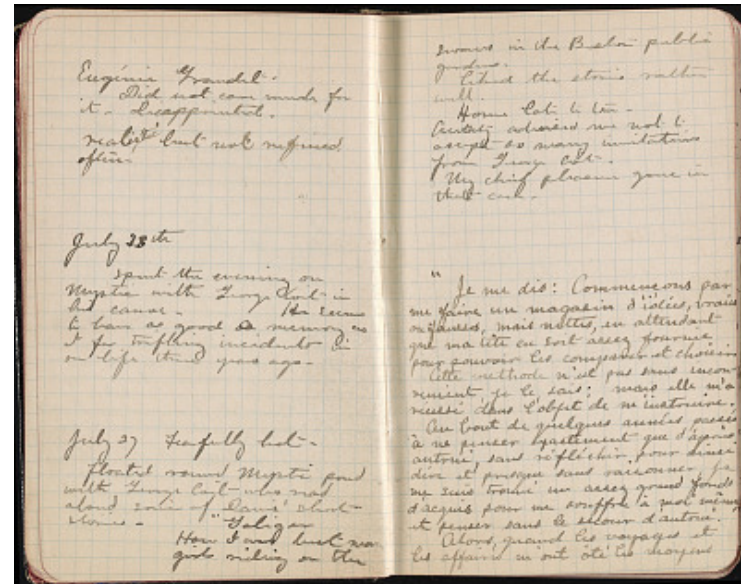 Eugénie Grandet.
Did not care much for
it - Disappointed.
realist but not refined
often.
July 28th
Spent the evening on
Mystic with George Coit in
his canoe. He seems
to have as good a memory as
I for trifling incidents in
our life three years ago.
July 29 Fearfully hot -
Floated round Mystic pond
with George Coit who read
aloud some of Davis' short
stories - "
How I was best man
girls riding on the
swans in the Boston public
gardens.
liked the stories rather
well.
Home late to tea -
advised me not to
accept so many invitations
from George Coit.
My chief pleasure gone in
that case.
" Je me dis: Commençons par
me faire un magasin d'idées, vraies
ou fausses, mais nettes, en attendant
que ma tête en soit assez fournie
pour pouvoir les comparer et choisir
Cette méthode n'est pas sans incon-
venient je le sais: mais elle m'a
réussi dans l'objet de m'instruire.
Au bout de quelques années passées
à ne penser exactement que d'après
autrui, sans réfléchir, pour ainsi
dire et presque sans raisonner, je
me suis trouvé un assez grand fonds
d'acquis pour me souffire à moi même
et penser sans le secour d'autrui.
Alors, quand les voyages et
les affaires m'ont ôté les moyens